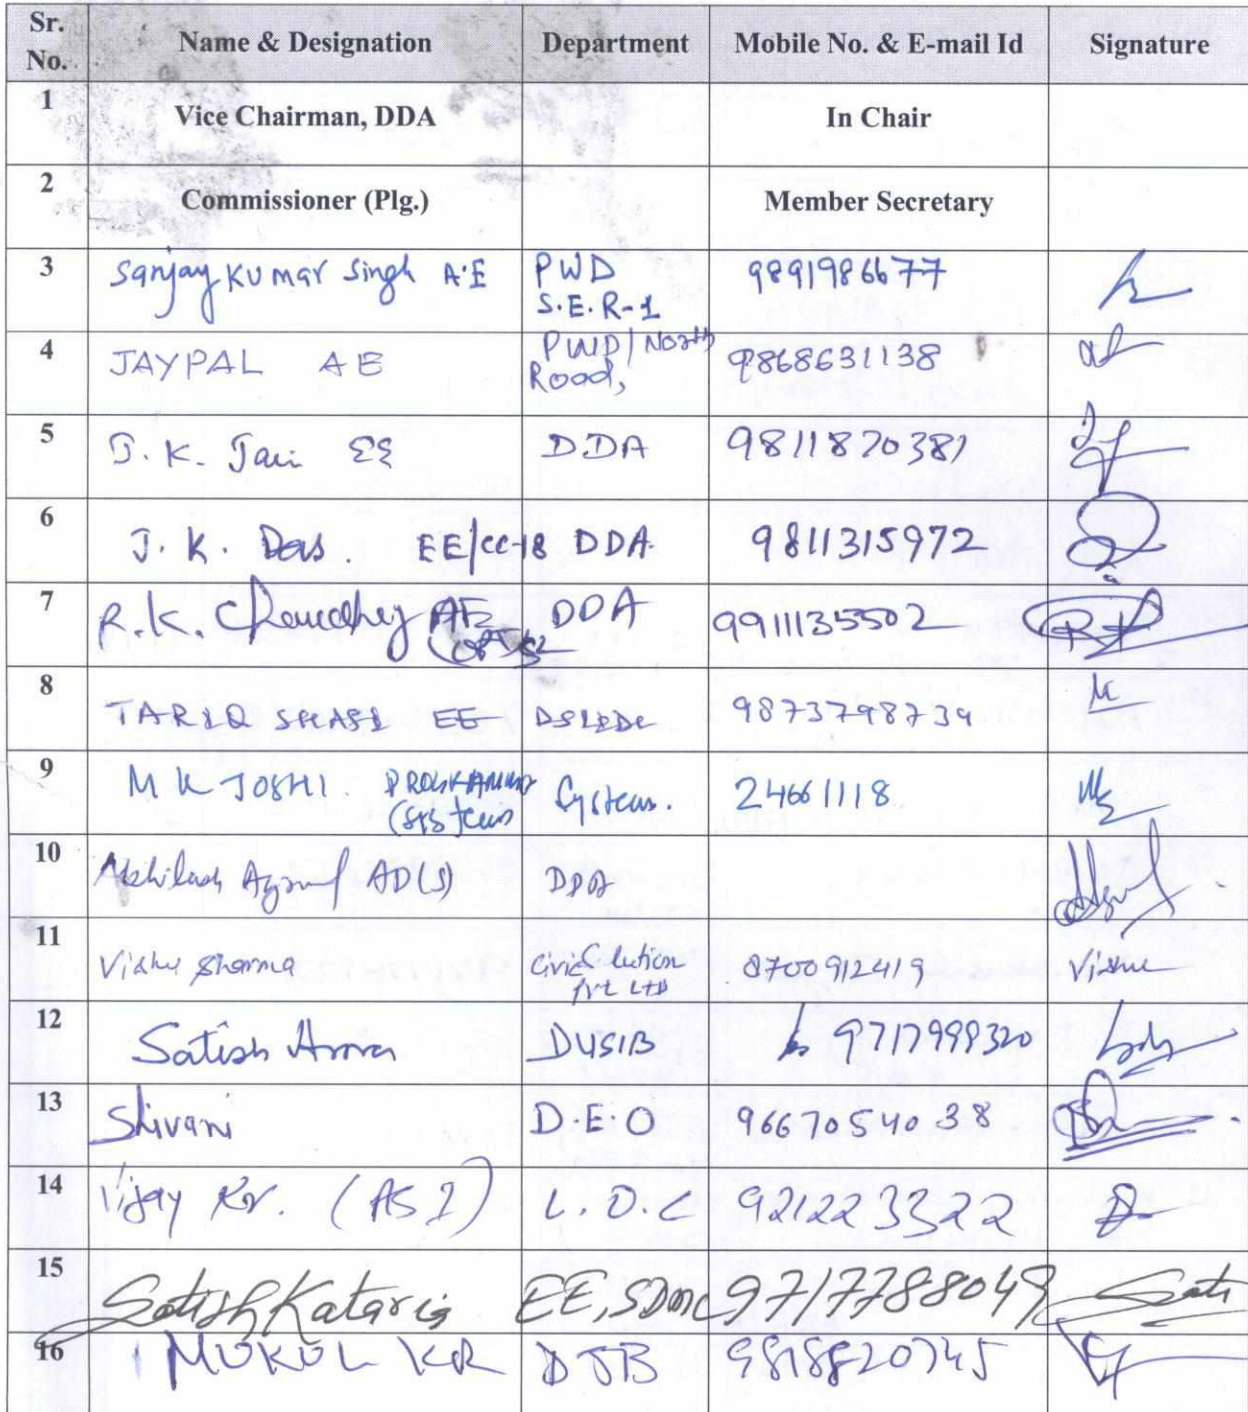 Sr. No. Name & Designation Department Mobile No. & E-mail Id Signature
1 Vice Chairman, DDA In Chair
2 Commissioner (Plg.) Member Secretary
3 Sanjay KUMAR Singh A.E PWD S.E.R-1 9891986677
4 JAYPAL AE PWD/North Road, 9868631138
5 J.K. Jain EE DDA 9811870381
6 J.K. Das. EE/CC-18 DDA. 9811315972
7 R.K. Choudhry AE DDA 9911135502
8 TARIQ EE 9873798734
9 M K JOSHI. PROGRAMMER (Systems Systems. 24661118
10 Abhilash Agarwal AD(S) DDA
11 Vishu Sharma Civic Pvt LTD 8700912419 Vishu
12 Satish Arora DUSIB 9717999320
13 Shivani D.E.O 9667054038
14 Vijay Kr. (ASI) L.O.C 9212233322
15 Satish Kataria EE, SDMC 9717788049 Sati
16 MUKUL KR DJB 9818820745